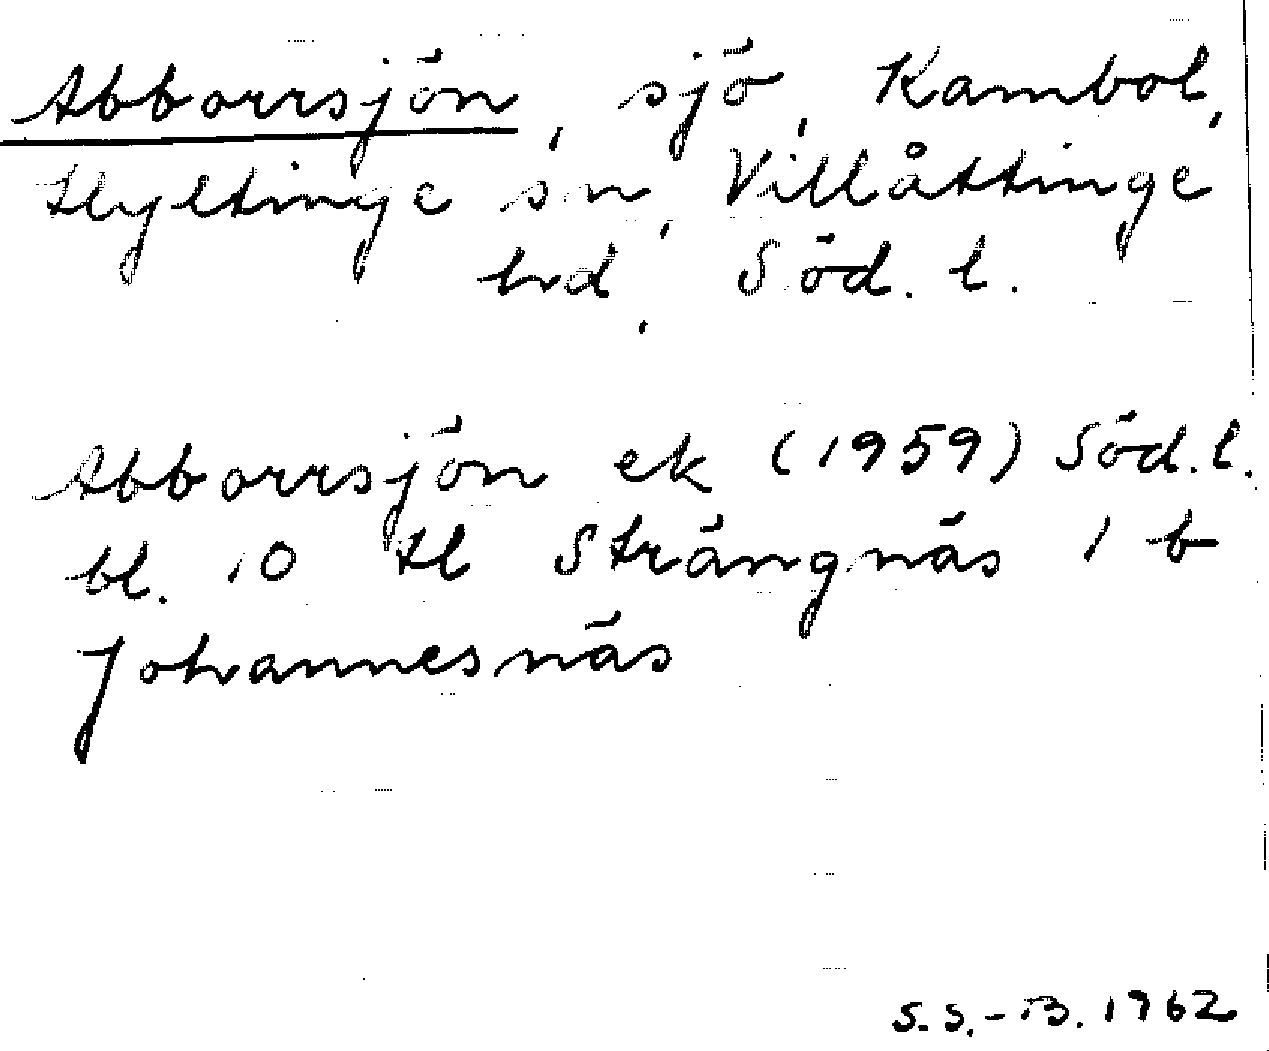 Abborrsjön, sjö, Kambol,
Hyltinge sn, Villåttinge
hd, Söd. l.
Abborrsjön ek (1959) Söd. l.
bl. 10 H Strängnäs 1 b
Johannesnäs
S.S.-B. 1962